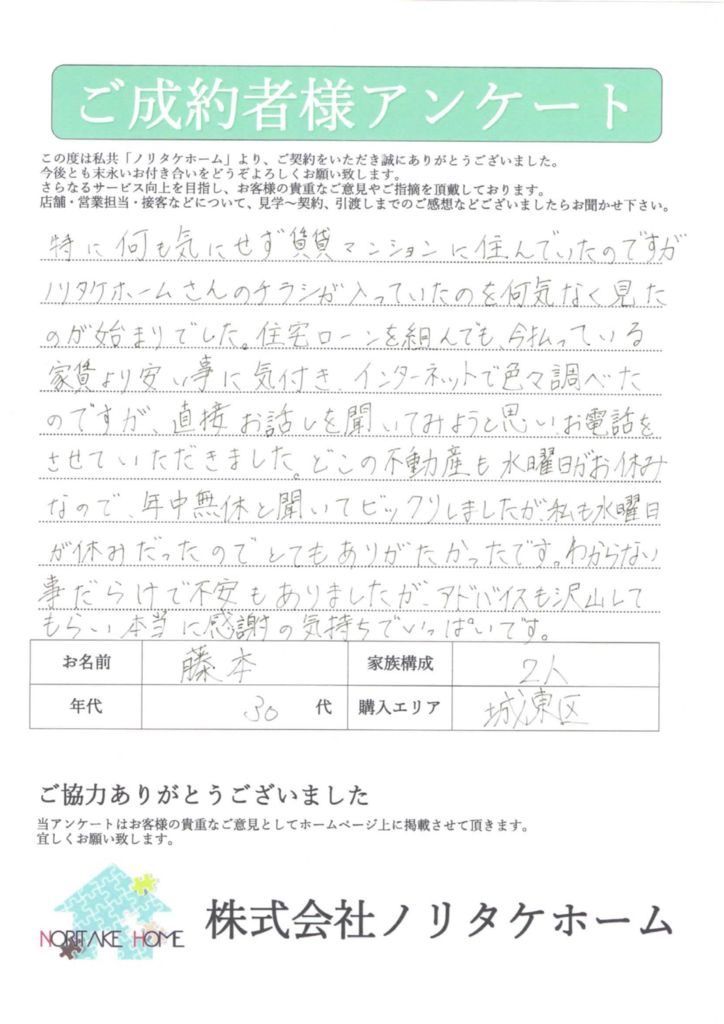 ご成約者様アンケート
この度は私共「ノリタケホーム」より、ご契約をいただき誠にありがとうございました。
今後とも末永いお付き合いをどうぞよろしくお願い致します。
さらなるサービス向上を目指し、お客様の貴重なご意見やご指摘を頂戴しております。
店舗・営業担当・接客などについて、見学～契約、引渡しまでのご感想などございましたらお聞かせ下さい。
特に何も気にせず賃貸マンションに住んでいたのですが
ノリタケホームさんのチラシが入っていたのを何気なく見た
のが始まりでした。住宅ローンを組んでも、今払っている
家賃より安い事に気付き、インターネットで色々調べた
のですが、直接お話しを聞いてみようと思いお電話を
させていただきました。どこの不動産も水曜日がお休み
なので、年中無休と聞いてビックリしましたが、私も水曜日
が休みだったのでとてもありがたかったです。わからない
事だらけで不安もありましたが、アドバイスも沢山して
もらい本当に感謝の気持ちでいっぱいです。
お名前 藤本 家族構成 2人
年代 30 代 購入エリア 城東区
ご協力ありがとうございました
当アンケートはお客様の貴重なご意見としてホームページ上に掲載させて頂きます。
宜しくお願い致します。
NORITAKE HOME 株式会社ノリタケホーム